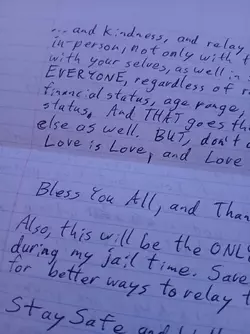 ... and kindness, and relay
in-person, not only with f
with your selves, as well in
EVERYONE, regardless of r
financial status, age range,
status. And THAT goes th
else as well. BUT, don't
Love is Love, and Love
Bless You All, and Than
Also, this will be the ONL
during my jail time. Save
for better ways to relay t
Stay Safe and